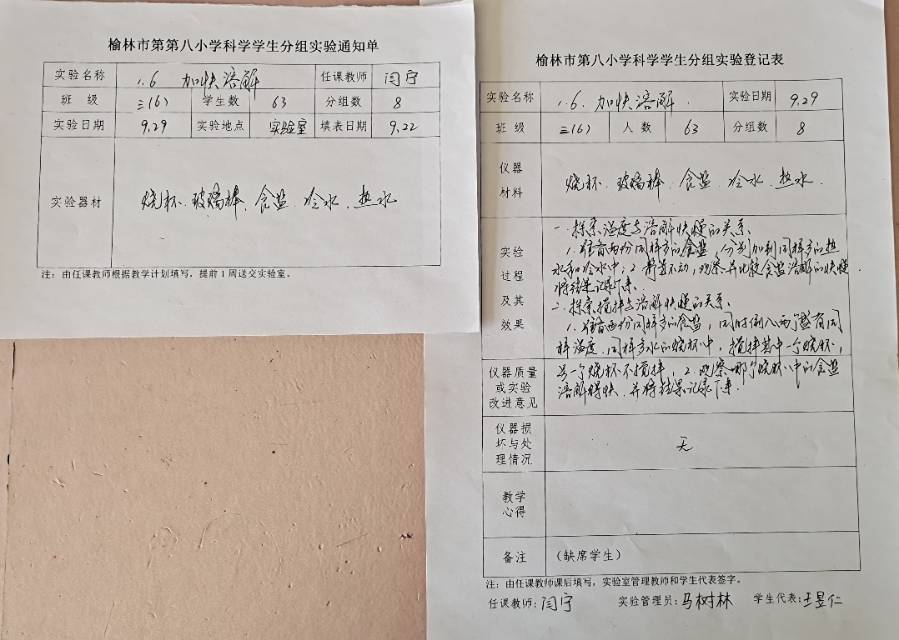 榆林市第第八小学科学学生分组实验通知单
实验名称 1.6 加快溶解 任课教师 闫宁
班级 三(6) 学生数 63 分组数 8
实验日期 9.29 实验地点 实验室 填表日期 9.22
实验器材 烧杯、玻璃棒、食盐、冷水、热水
注:由任课教师根据教学计划填写,提前1周送交实验室。
榆林市第八小学科学学生分组实验登记表
实验名称 1.6.加快溶解. 实验日期 9.29
班级 三(6) 人数 63 分组数 8
仪器材料 烧杯、玻璃棒、食盐、冷水、热水.
实验过程及其效果
一.探索温度与溶解快慢的关系.
1.准备两份同样多的食盐,分别加到同样多的热
水和冷水中;2.静置不动,观察并比较食盐溶解的快慢,
将结果记录下来.
二.探索搅拌与溶解快慢的关系.
1.准备两份同样多的食盐,同时倒入两个盛有同
样温度、同样多水的烧杯中,搅拌其中一个烧杯,
另一个烧杯不搅拌;2.观察哪个烧杯中的食盐
溶解得快,并将结果记录下来.
仪器质量或实验改进意见
仪器损坏与处理情况 无
教学心得
备注 (缺席学生)
注:由任课教师课后填写,实验室管理教师和学生代表签字。
任课教师:闫宁 实验管理员:马树林 学生代表:王昱仁